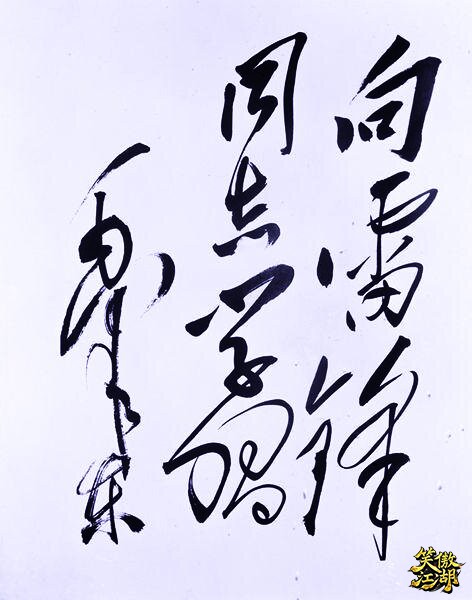 向雷锋
同志学习
毛泽东
笑傲
江湖